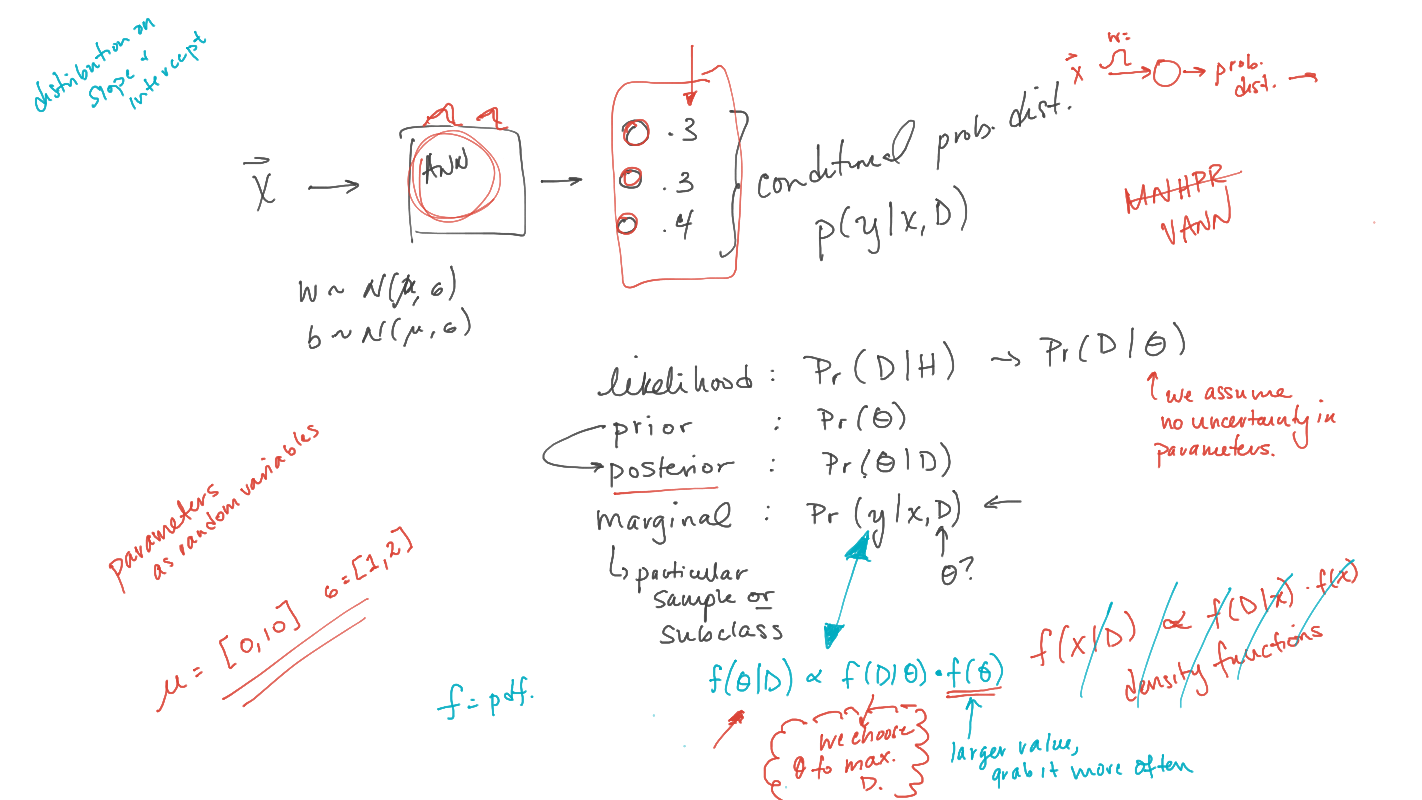 distribution on
slope &
intercept
w=
x → prob.
dist. →
ANN
x →
→
.3
.3
.4
conditional prob. dist.
p(y|x,D)
MNHPR
VANN
w ~ N(μ, σ)
b ~ N(μ, σ)
likelihood : Pr(D|H) → Pr(D|θ)
we assume
no uncertainty in
parameters.
prior : Pr(θ)
posterior : Pr(θ|D)
marginal : Pr(y|x,D) ←
θ?
particular
sample or
subclass
parameters
as random variables
μ = [0,10] σ=[1,2]
f = pdf.
f(θ|D) ∝ f(D|θ) · f(θ)
we choose
θ to max.
D.
larger value,
grab it more often
f(x|D) ∝ f(D|x) · f(x)
density functions